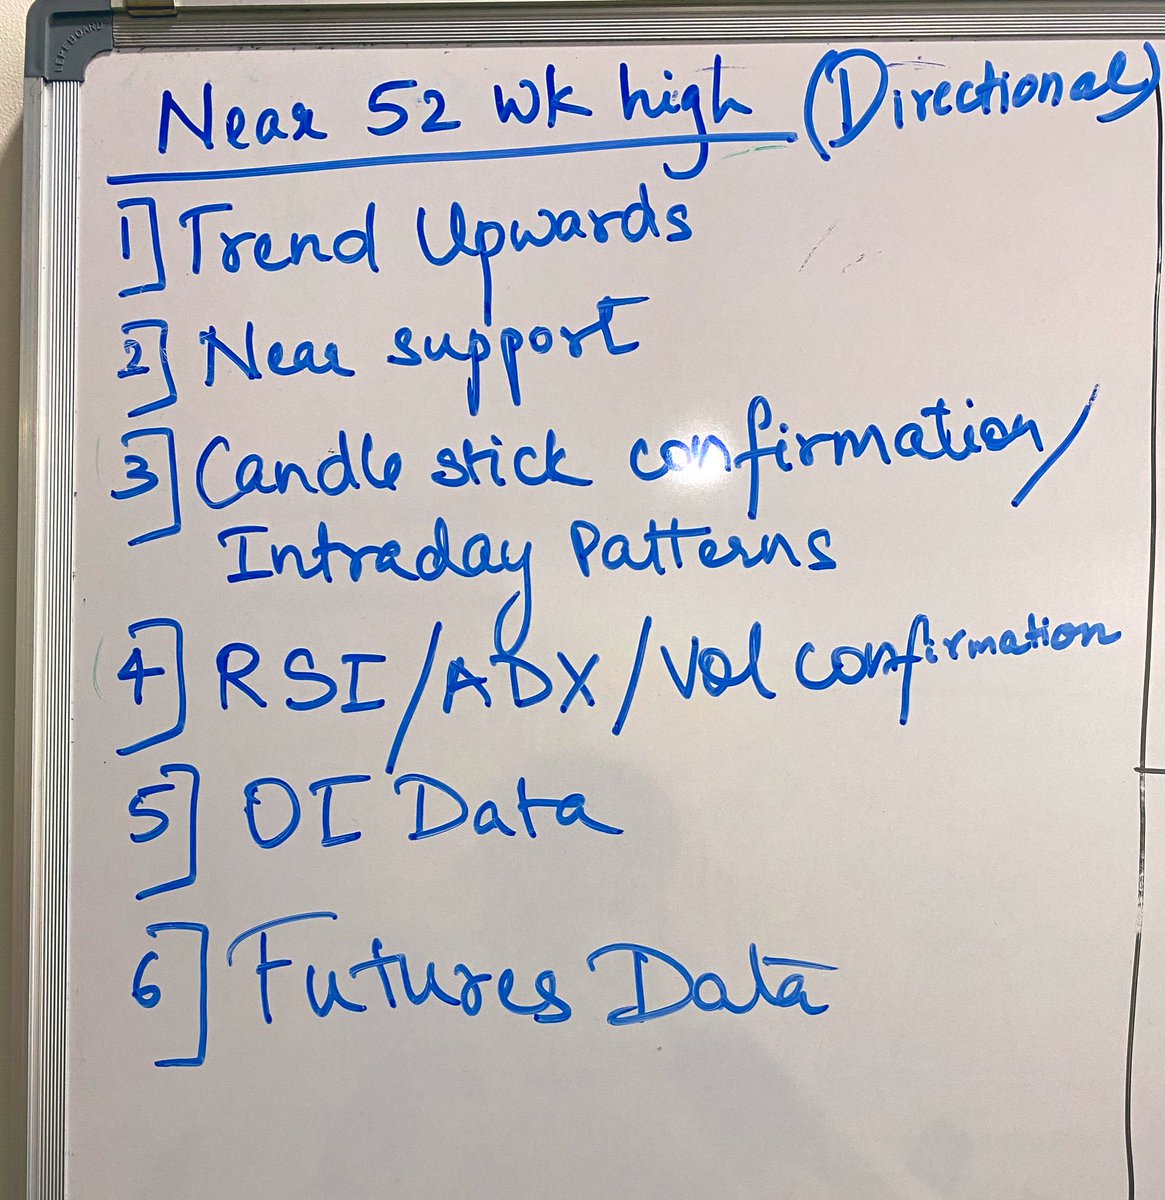 LEPEBOARD
Near 52 wk high (Directional)
1] Trend Upwards
2] Near support
3] Candle stick confirmation/
Intraday Patterns
4] RSI/ADX/Vol confirmation
5] OI Data
6] Futures Data